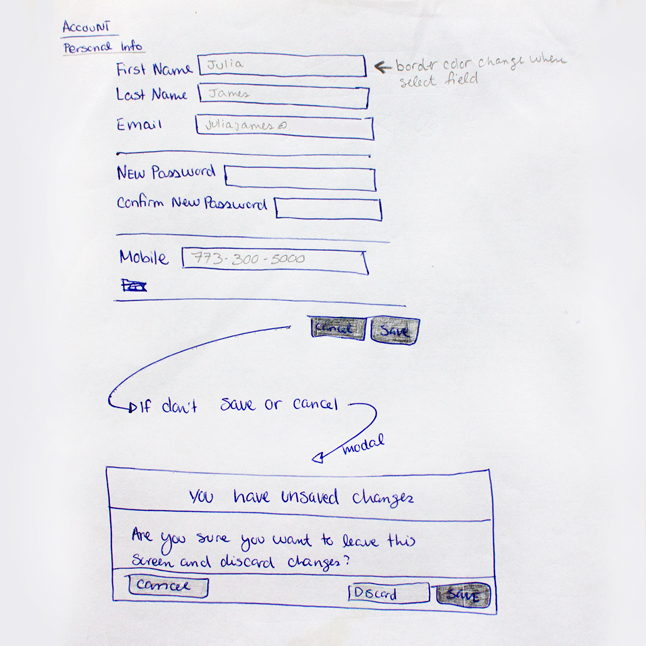 Account
Personal Info
First Name Julia
border color change when
select field
Last Name James
Email juliajames@
New Password
Confirm New Password
Mobile 773-300-5000
Cancel Save
If don't save or cancel
modal
You have unsaved changes
Are you sure you want to leave this
screen and discard changes?
Cancel Discard Save